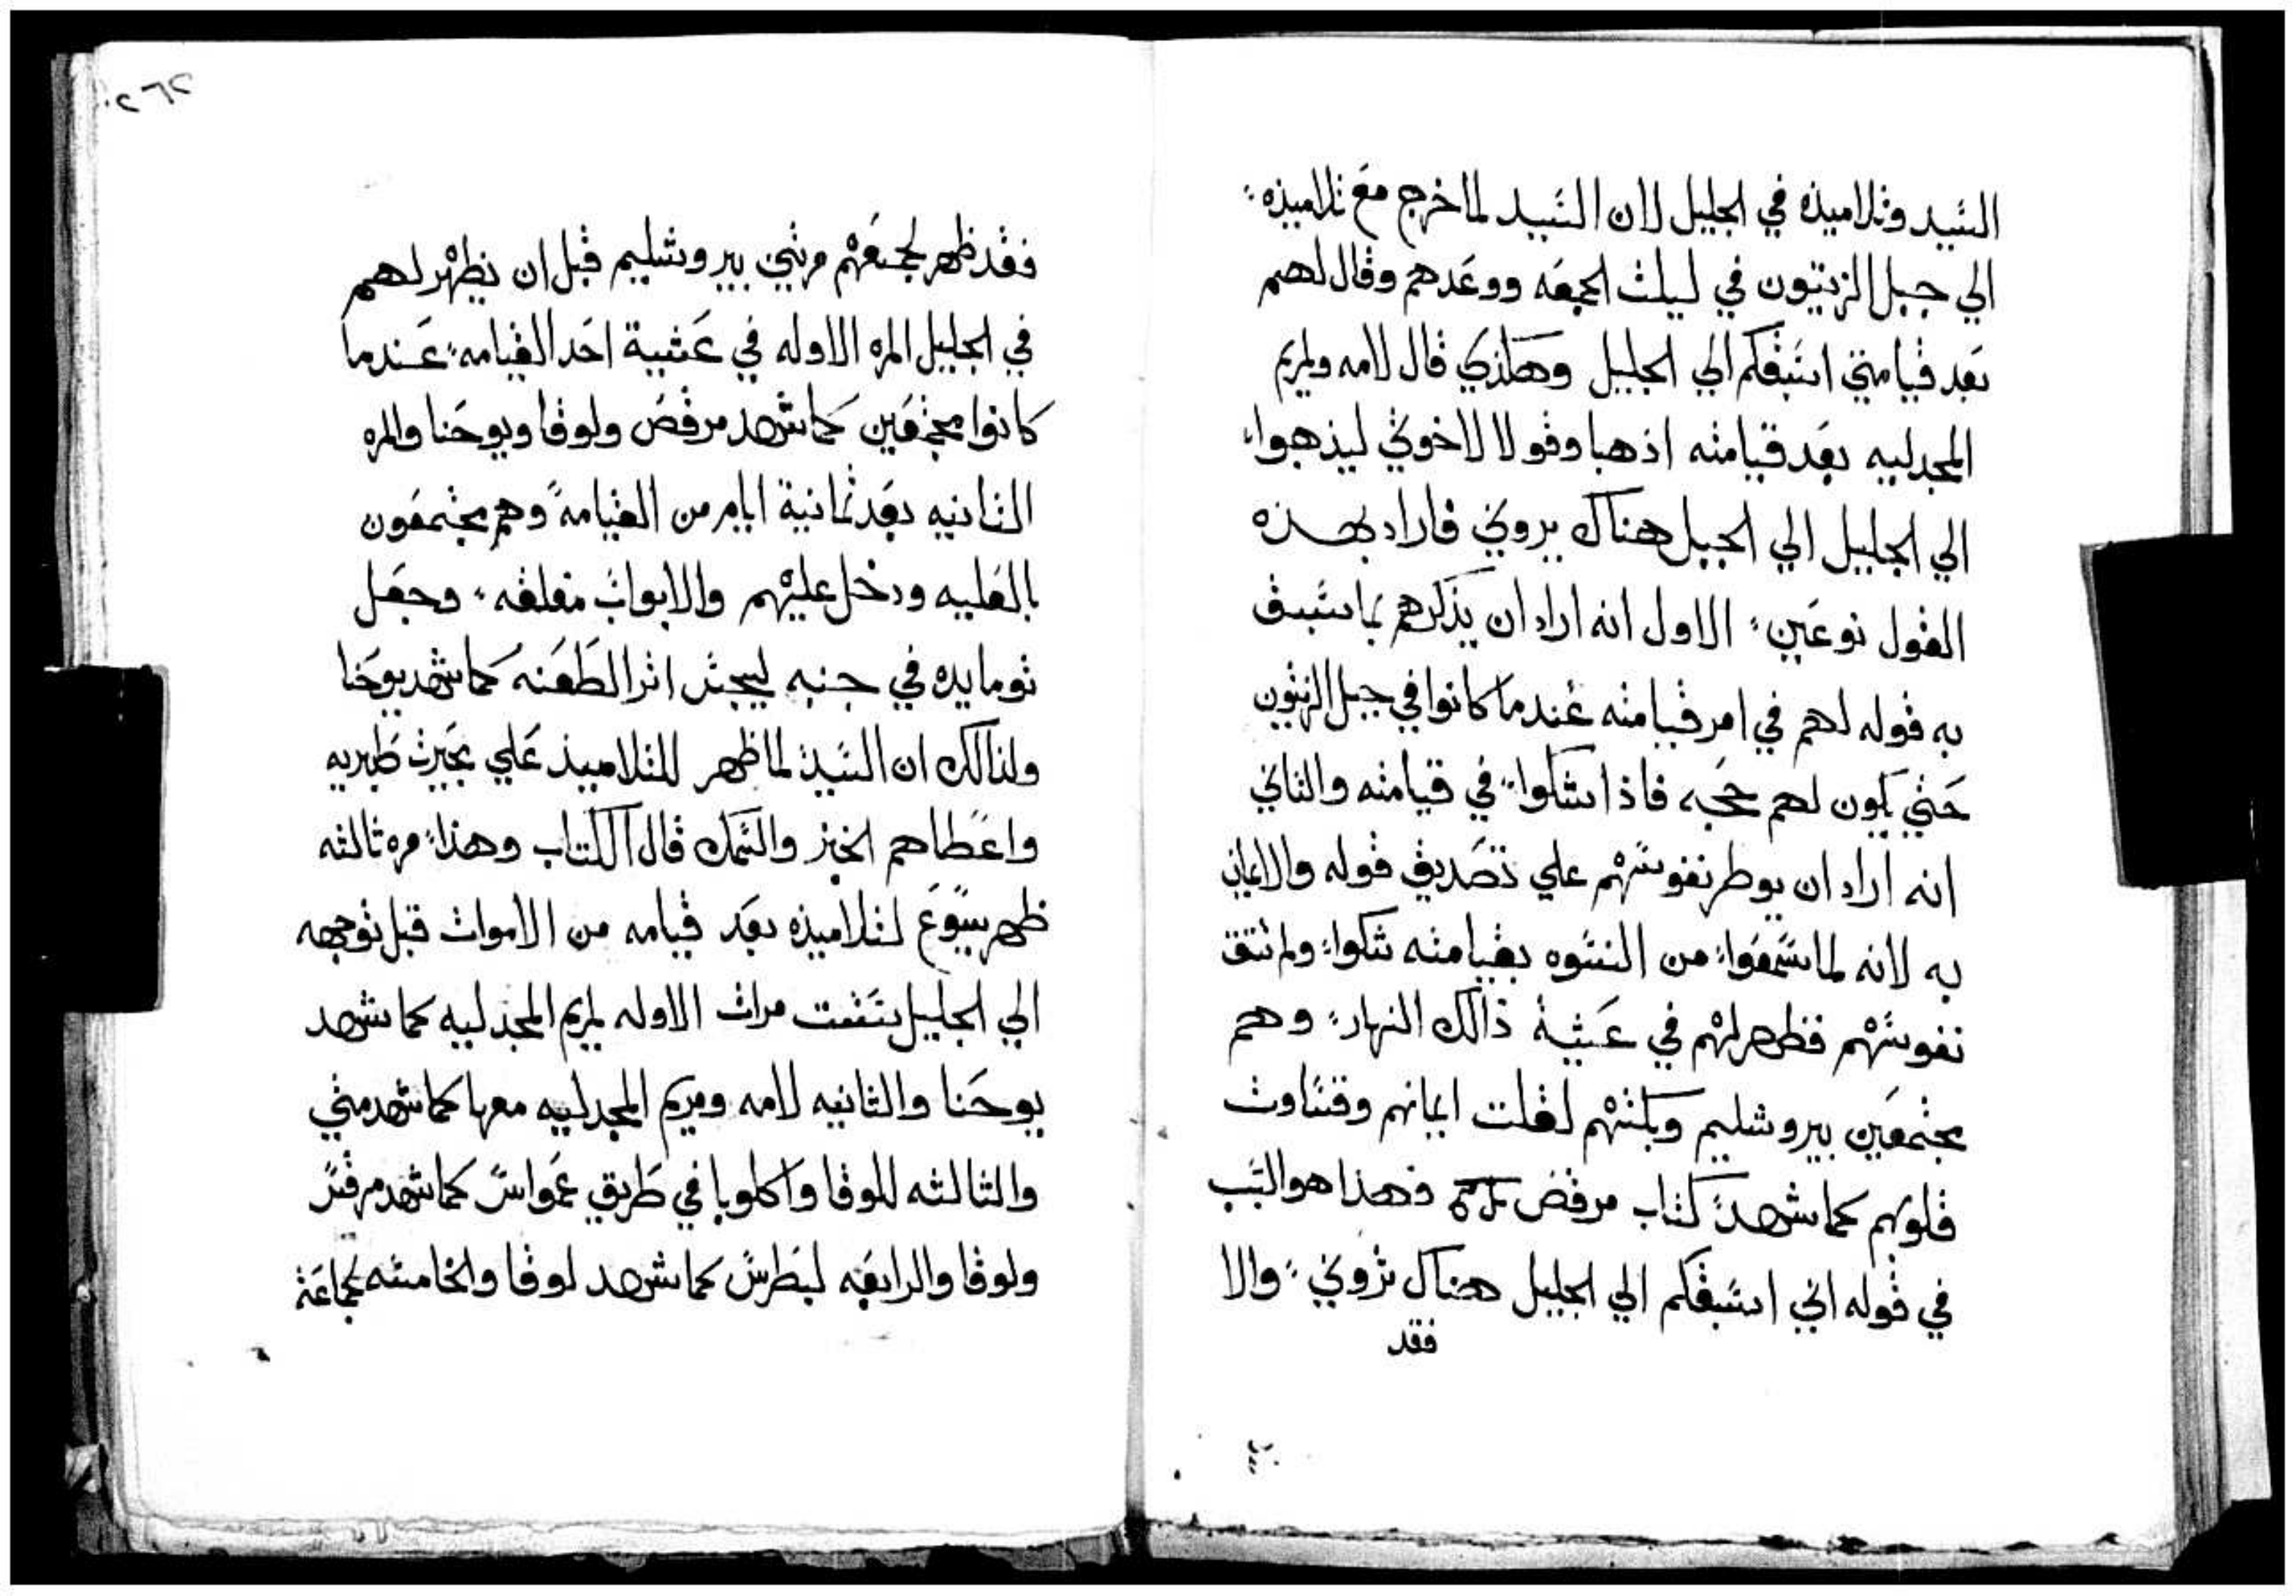 السيد وتلاميذه في الجليل لان السيد لما خرج مع تلاميذه
الي جبل الزيتون في ليلت الجمعه ووعدهم وقال لهم
بعد قيامتي اسبقكم الي الجليل وهكذي قال لامه ولمريم
المجدليه بعد قيامته اذهبا وقولا لاخوتي ليذهبوا
الي الجليل الي الجبل هناك يروني فاراد بهذه
القول نوعين الاول انه اراد ان يذكرهم بما سبق
به قوله لهم في امر قيامته عندما كانوا في جبل الزيتون
حتي يكون لهم حجه فاذا شكوا في قيامته والثاني
انه اراد ان يوطر نفوسهم علي تصديق قوله والايمان
به لانه لما سمعوا من النسوه بقيامته شكوا ولم تثق
نفوسهم فظهر لهم في عشية ذالك النهار وهم
مجتمعين بيروشليم وبكتهم لقلت ايمانهم وقساوت
قلوبهم كما شهد كتاب مرقص فهذا هو السبب
في قوله اني اسبقكم الي الجليل هناك تروني والا
فقد
٢٦٢
فقد ظهر لجمعهم مرتين بيروشليم قبل ان يظهر لهم
في الجليل المره الاوله في عشية احد القيامه عندما
كانوا مجتمعين كما شهد مرقص ولوقا ويوحنا والمره
الثانيه بعد ثمانية ايام من القيامه وهم مجتمعون
بالعليه ودخل عليهم والابواب مغلقه وجعل
توما يده في جنبه ليجش اثر الطعنه كما شهد يوحنا
ولذالك ان السيد لما ظهر للتلاميذ علي بحيرت طبريه
واعطاهم الخبز والسمك قال الكتاب وهذا مره ثالثه
ظهر يسوع لتلاميذه بعد قيامه من الاموات قبل توجهه
الي الجليل مرات الاوله لمريم المجدليه كما شهد
يوحنا والثانيه لامه ومريم المجدليه معها كما شهد متي
والثالثه للوقا واكلوبا في طريق عمواس كما شهد مرقس
ولوقا والرابعه لبطرس كما شهد لوقا والخامسه لجماعة